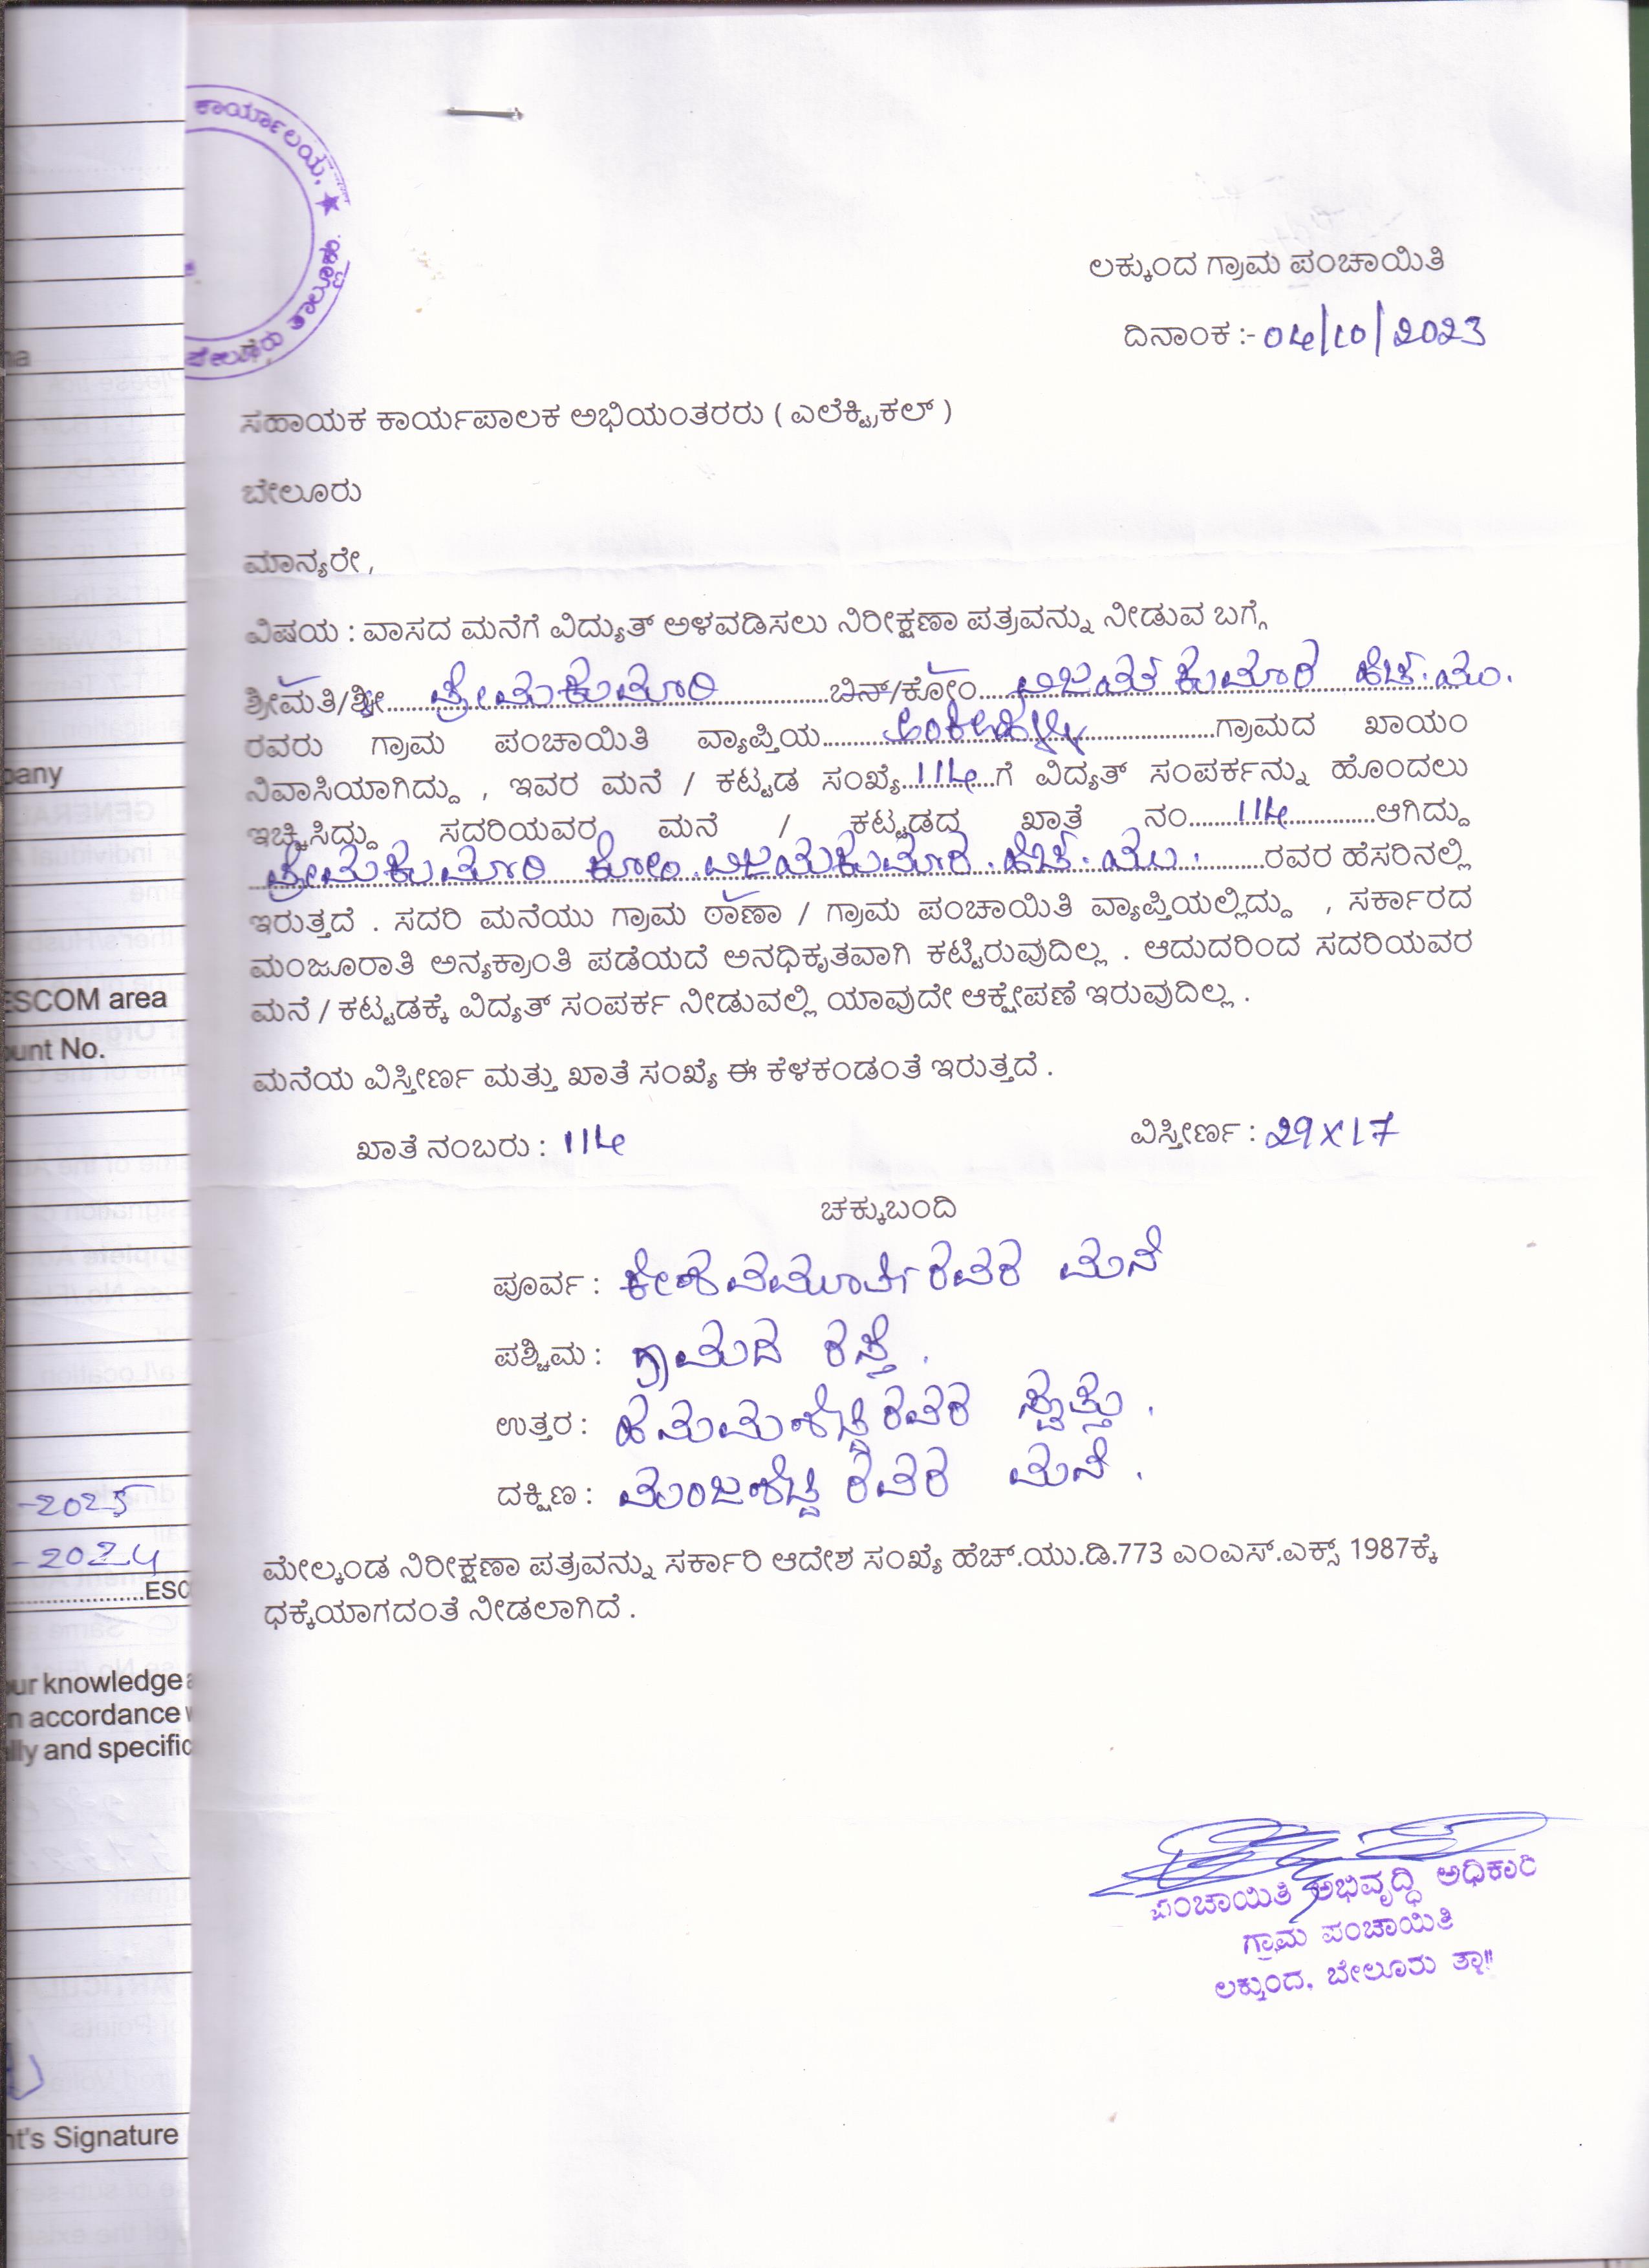 ಕಾರ್ಯಾಲಯ, ★
ಬೇಲೂರು ತಾಲ್ಲೂಕು.
ಲಕ್ಕುಂದ ಗ್ರಾಮ ಪಂಚಾಯಿತಿ
ದಿನಾಂಕ :- 04/10/2023
ಸಹಾಯಕ ಕಾರ್ಯಪಾಲಕ ಅಭಿಯಂತರರು ( ಎಲೆಕ್ಟ್ರಿಕಲ್ )
ಬೇಲೂರು
ಮಾನ್ಯರೇ ,
ವಿಷಯ : ವಾಸದ ಮನೆಗೆ ವಿದ್ಯುತ್ ಅಳವಡಿಸಲು ನಿರೀಕ್ಷಣಾ ಪತ್ರವನ್ನು ನೀಡುವ ಬಗ್ಗೆ
ಶ್ರೀಮತಿ/ಶ್ರೀ.....ಪ್ರೇಮಕುಮಾರಿ.....ಬಿನ್/ಕೋಂ.....ವಿಜಯಕುಮಾರ ಹೆಚ್.ಎಂ.
ರವರು ಗ್ರಾಮ ಪಂಚಾಯಿತಿ ವ್ಯಾಪ್ತಿಯ..........ಗ್ರಾಮದ ಖಾಯಂ
ನಿವಾಸಿಯಾಗಿದ್ದು , ಇವರ ಮನೆ / ಕಟ್ಟಡ ಸಂಖ್ಯೆ..114...ಗೆ ವಿದ್ಯತ್ ಸಂಪರ್ಕನ್ನು ಹೊಂದಲು
ಇಚ್ಚಿಸಿದ್ದು ಸದರಿಯವರ ಮನೆ / ಕಟ್ಟಡದ ಖಾತೆ ನಂ.....114.....ಆಗಿದ್ದು
ಪ್ರೇಮಕುಮಾರಿ ಕೋಂ ವಿಜಯಕುಮಾರ.ಹೆಚ್.ಎಂ.......ರವರ ಹೆಸರಿನಲ್ಲಿ
ಇರುತ್ತದೆ . ಸದರಿ ಮನೆಯು ಗ್ರಾಮ ಠಾಣಾ / ಗ್ರಾಮ ಪಂಚಾಯಿತಿ ವ್ಯಾಪ್ತಿಯಲ್ಲಿದ್ದು , ಸರ್ಕಾರದ
ಮಂಜೂರಾತಿ ಅನ್ಯಕ್ರಾಂತಿ ಪಡೆಯದೆ ಅನಧಿಕೃತವಾಗಿ ಕಟ್ಟಿರುವುದಿಲ್ಲ . ಆದುದರಿಂದ ಸದರಿಯವರ
ಮನೆ / ಕಟ್ಟಡಕ್ಕೆ ವಿದ್ಯತ್ ಸಂಪರ್ಕ ನೀಡುವಲ್ಲಿ ಯಾವುದೇ ಆಕ್ಷೇಪಣೆ ಇರುವುದಿಲ್ಲ .
ಮನೆಯ ವಿಸ್ತೀರ್ಣ ಮತ್ತು ಖಾತೆ ಸಂಖ್ಯೆ ಈ ಕೆಳಕಂಡಂತೆ ಇರುತ್ತದೆ .
ಖಾತೆ ನಂಬರು : 114 ವಿಸ್ತೀರ್ಣ : 29X17
ಚಕ್ಕುಬಂದಿ
ಪೂರ್ವ : ಕೇಶವಮೂರ್ತಿರವರ ಮನೆ
ಪಶ್ಚಿಮ : ಗ್ರಾಮದ ರಸ್ತೆ .
ಉತ್ತರ : ಸ್ವತ್ತು .
ದಕ್ಷಿಣ : ಮಂಜಶೆಟ್ಟಿ ರವರ ಮನೆ .
ಮೇಲ್ಕಂಡ ನಿರೀಕ್ಷಣಾ ಪತ್ರವನ್ನು ಸರ್ಕಾರಿ ಆದೇಶ ಸಂಖ್ಯೆ ಹೆಚ್.ಯು.ಡಿ.773 ಎಂಎಸ್.ಎಕ್ಸ್ 1987ಕ್ಕೆ
ಧಕ್ಕೆಯಾಗದಂತೆ ನೀಡಲಾಗಿದೆ .
ಪಂಚಾಯಿತಿ ಅಭಿವೃದ್ಧಿ ಅಧಿಕಾರಿ
ಗ್ರಾಮ ಪಂಚಾಯಿತಿ
ಲಕ್ಕುಂದ, ಬೇಲೂರು ತಾ||
pany
ESCOM area
ount No.
-2025
-2024
ESC
our knowledge
n accordance
lly and specific
nt's Signature